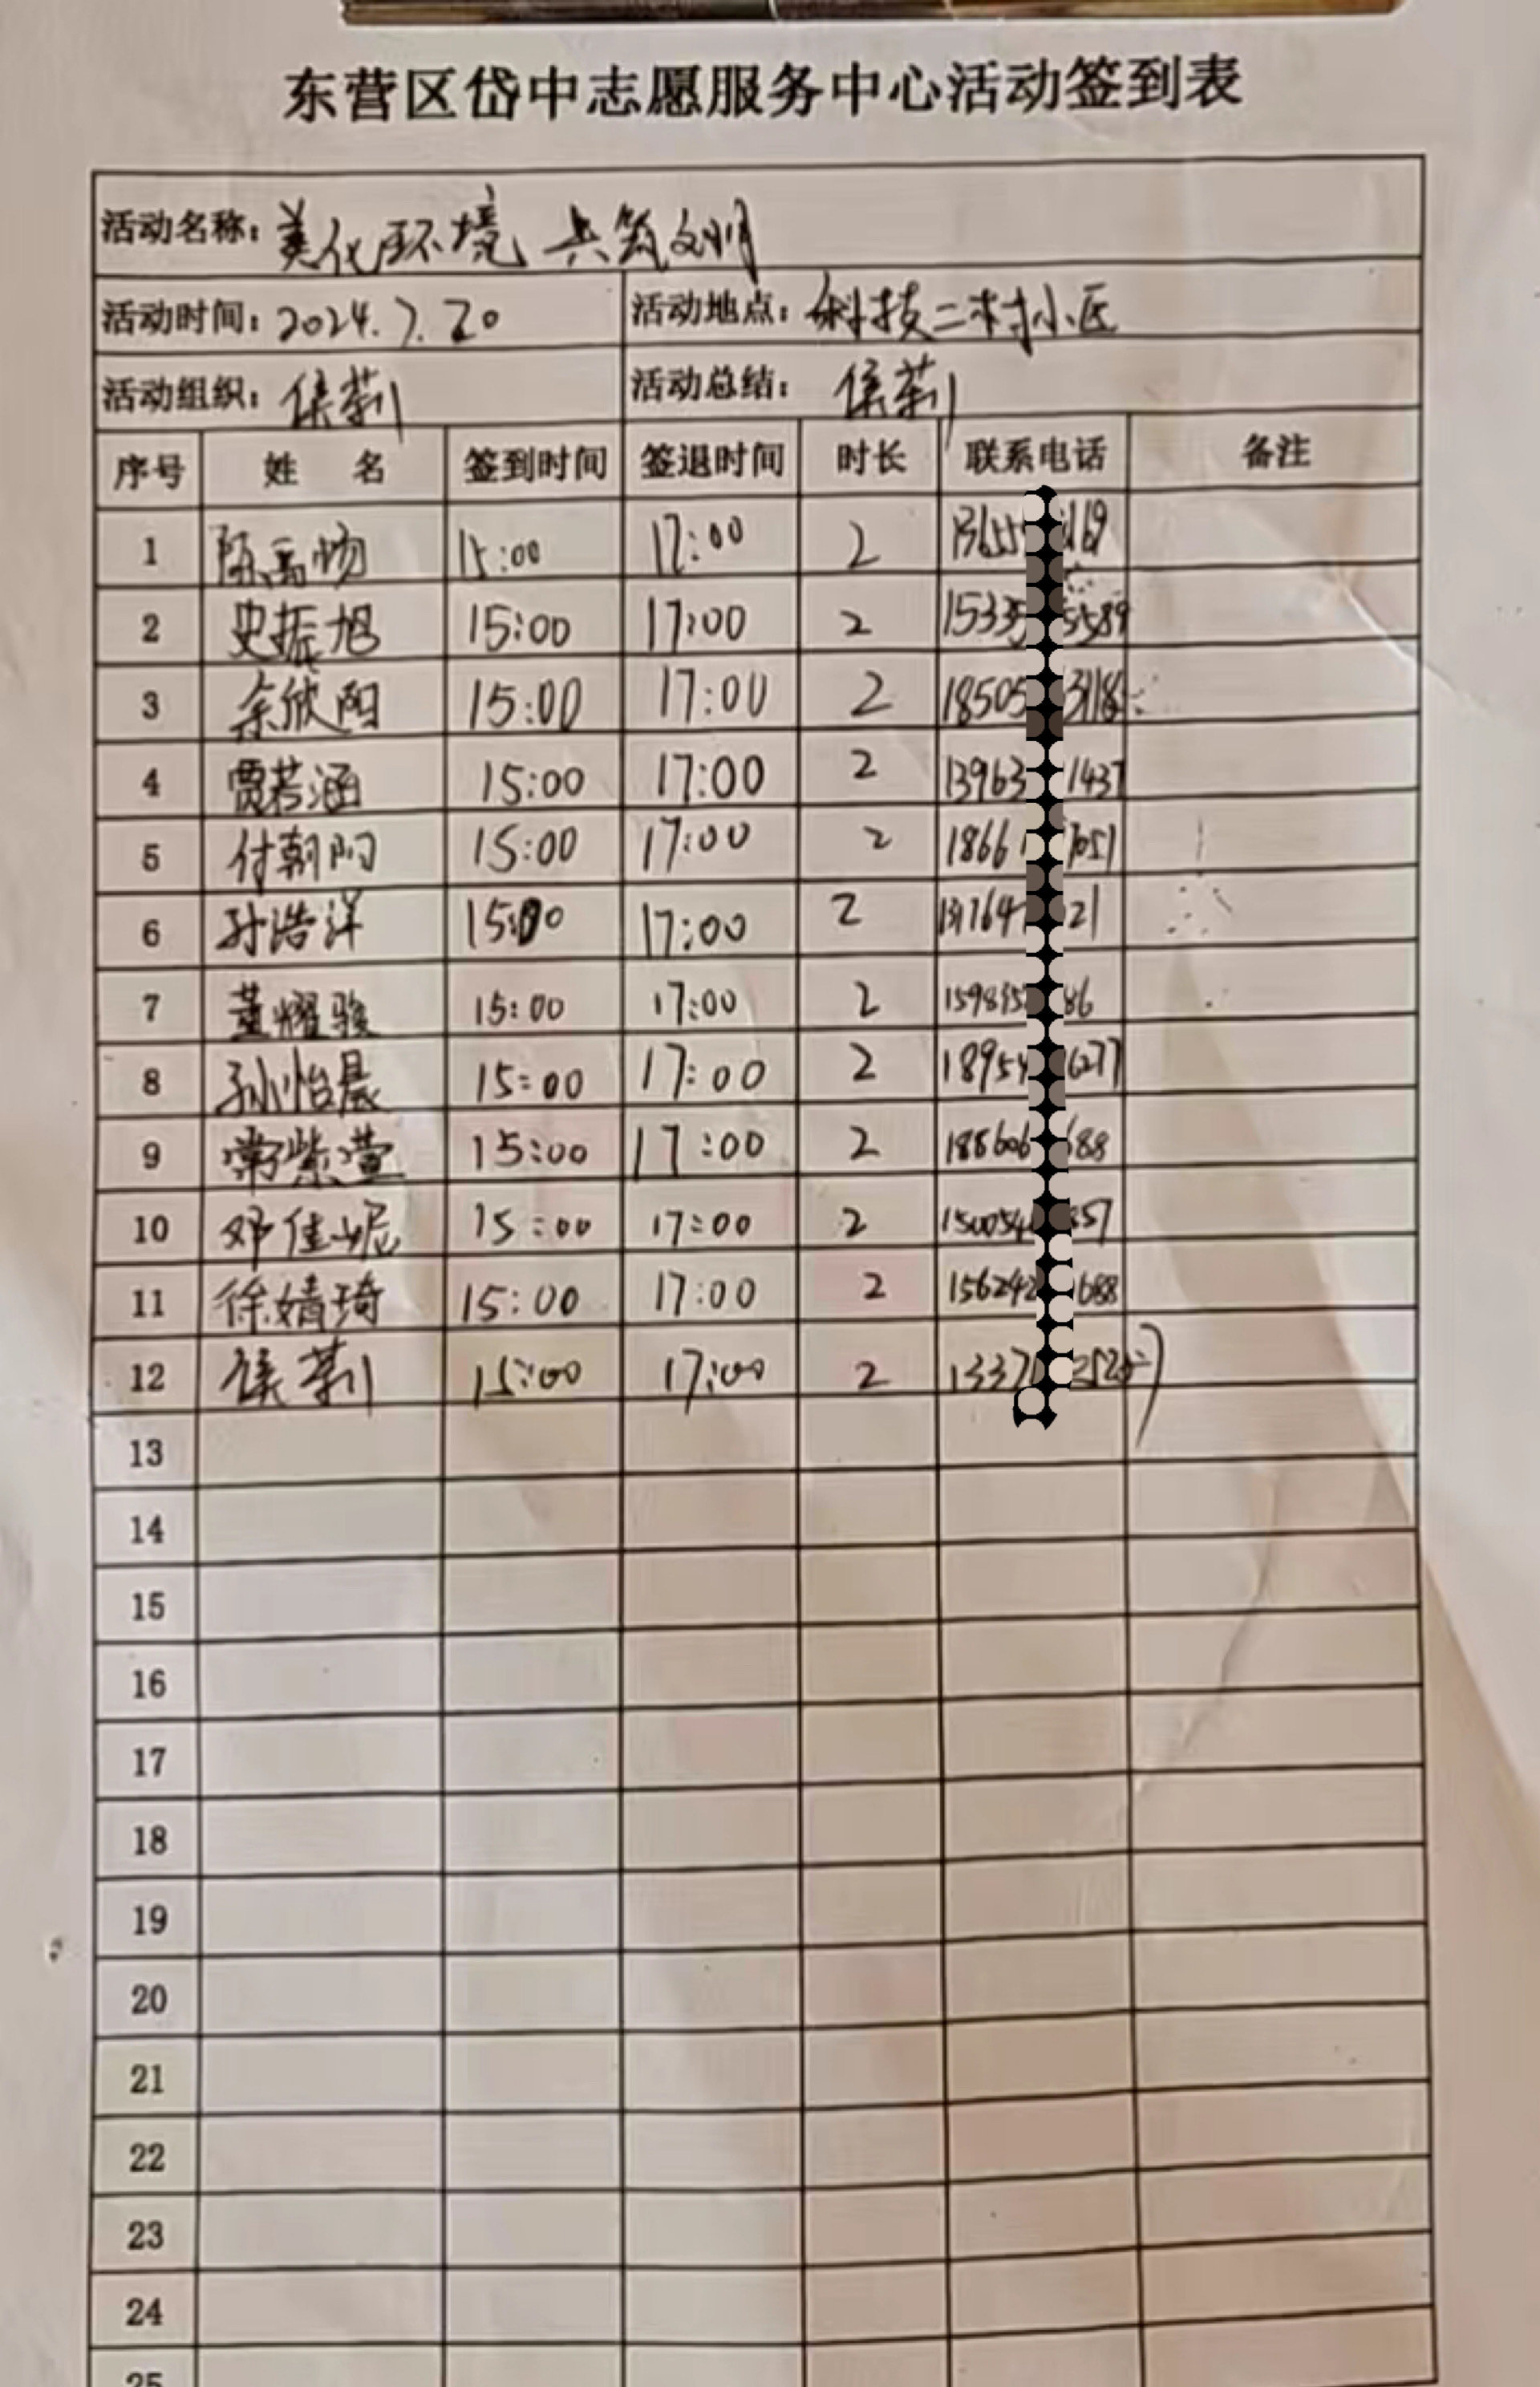 东营区岱中志愿服务中心活动签到表
活动名称：美化环境 共筑文明
活动时间：2024.7.20 活动地点：科技二村小区
活动组织：侯莉 活动总结：侯莉
序号 姓 名 签到时间 签退时间 时长 联系电话 备注
1 15:00 17:00 2
2 史振旭 15:00 17:00 2
3 余欣阳 15:00 17:00 2
4 贾若涵 15:00 17:00 2
5 付朝阳 15:00 17:00 2
6 孙浩洋 15:00 17:00 2
7 董耀骏 15:00 17:00 2
8 孙怡晨 15:00 17:00 2
9 常紫萱 15:00 17:00 2
10 邓佳妮 15:00 17:00 2
11 徐婧琦 15:00 17:00 2
12 侯莉 15:00 17:00 2
13
14
15
16
17
18
19
20
21
22
23
24
25